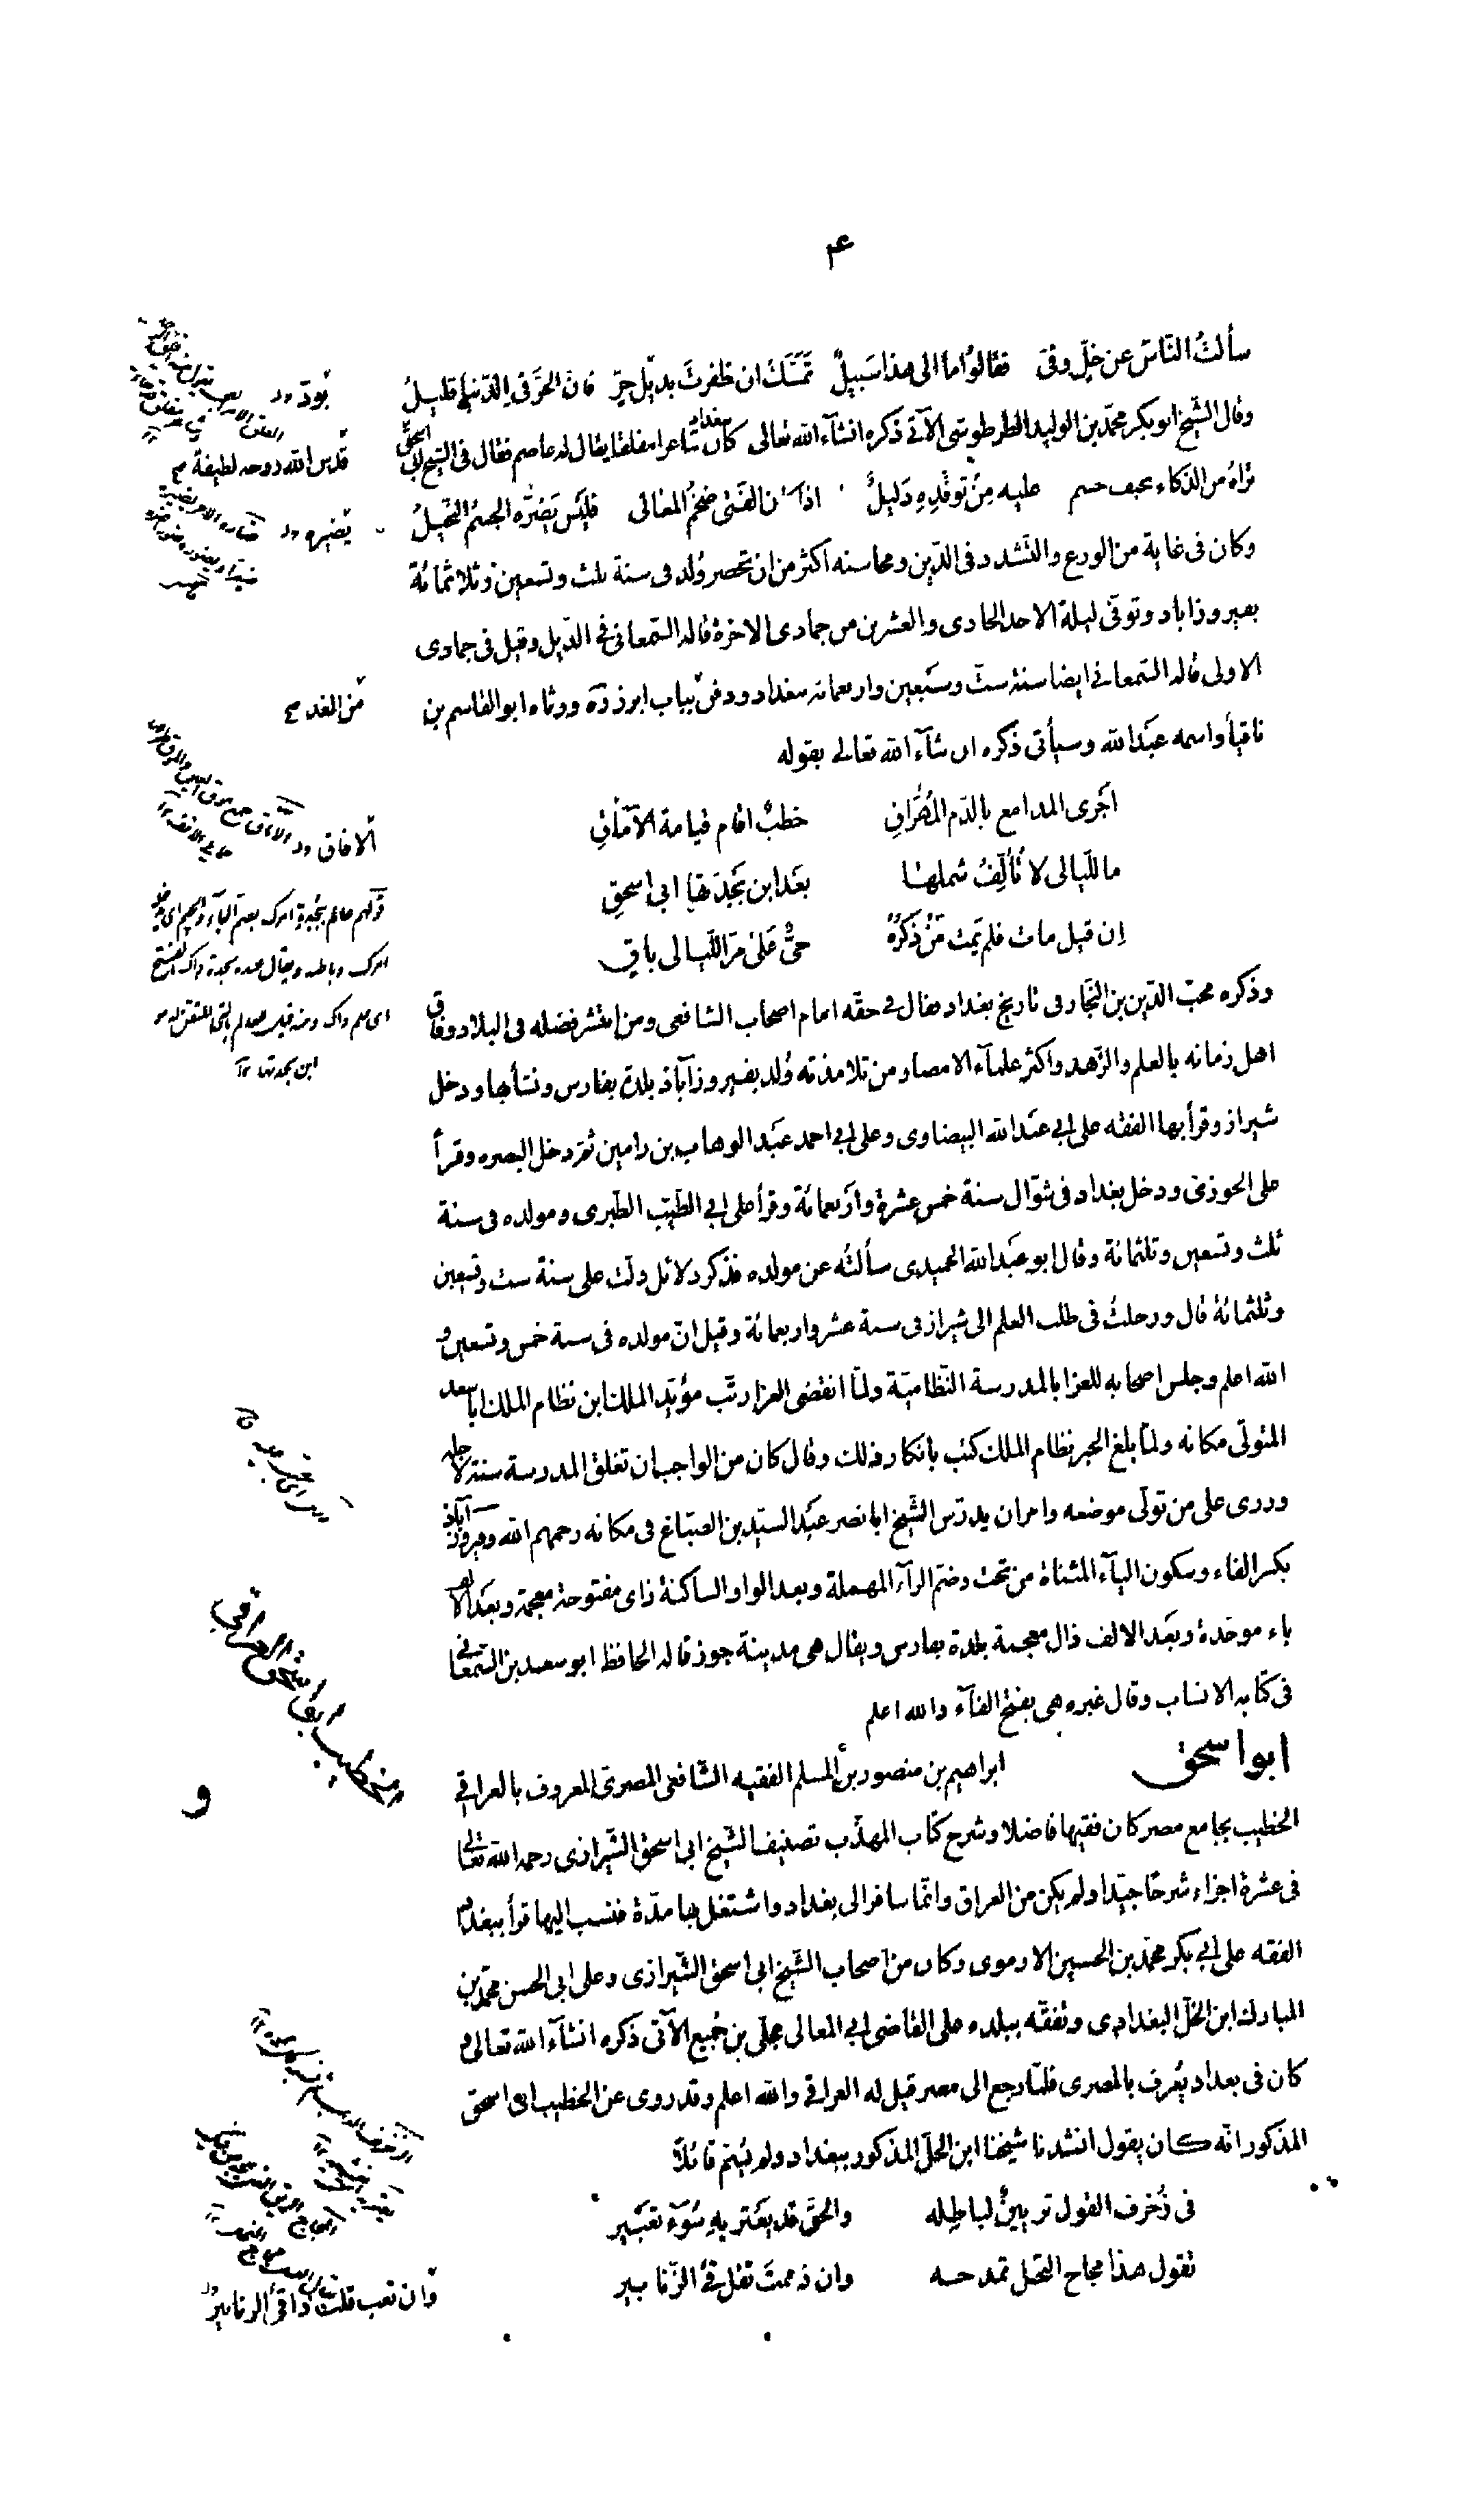 ٤
سألتُ النّاس عن خلٍّ وفىّ فقالوُا ما الى هذا سَبيلٌ تمَسَّك ان ظفرتَ بذيل حرّ فان الحرّ فى الدّنيا قليلُ
وقال الشّيخ ابو بكر محمّد بن الوليد الطرطوشى الآتى ذكره انشآء الله تعالى كان ببغداد شاعرا مفلقا يقال له عاصم فقال فى الشيخ ابى اسحق
تراهُ من الذكاء نحيف جسم عليه مِنْ توقّدِهِ دَليلٌ اذا كان الفَتى ضخمُ المعالى فليَس يَضرّه الجسمُ النّحيلُ
وكان فى غاية من الورع والتّشدد فى الدّين ومحاسنه اكثر من ان تحصر وُلد فى سنة ثلث وتسعين وثلاثمائة
بفيروزاباد وتوفّى ليلة الاحد الحادى والعشرين من جمادى الاخرة قاله السّمعانى فى الذيل وقيل فى جمادى
الاولى قاله السّمعانى ايضا سنة ستّ وسَبعين واربعمائه ببغداد ودفن بباب ابرز رَه ورثاه ابو القاسم بن
ناقيأ واسمه عبَد الله وسيأتى ذكره ان شآء الله تعالى بقوله
اَجَرى المدامع بالدّم المُهْرَاقِ خطبٌ اقام قيامة الآمَاقِ
ما للّيالى لا تُأَلِّفُ شملها بعَد ابن بَجْدَتها ابى اسحقِ
اِن قيل مات فلم يَمت مَنْ ذكرُهُ حىٌّ عَلىٰ مَرّ اللّيالى باقِ
وذكره محبّ الدّين بن النّجار فى تاريخ بغداد فقال فى حقّه امام اصحاب الشافعى ومن انتشر فضله فى البلاد وفاق
اهل زمانه بالعلم والزّهد واكثر علمآء الامصار من تلامذته وُلد بفيروزآباذ بلدة بفارس ونشأ بها ودخل
شيراز وقرأ بها الفقه على ابى عبَد الله البيضاوى وعلى ابى احمد عبَد الوهاب بن رامين ثم دخل البصره وقرأ
على الحوزى ودخل بغداد فى شوّال سنة خمس عشرة واَربعمائة وقرأ على ابى الطّيّب الطّبرى ومولده فى سنة
ثلث وتسعين وثلثمائة وقال ابو عبَد الله الحميدى سألتُه عن مولده فذكر دلائل دلّت على سنة ست وتسعين
وثلثمائة قال ورحلتُ فى طلب العلم الى شيراز فى سنة عشر واربعمائة وقيل انّ مولده فى سنة خمس وتسعين و
الله اعلم وجلس اصحابه للعزا بالمدرسة النّظاميّة ولمّا انقضى العزا رتّب مؤيّد الملك ابن نظام الملك ابا سعد
المتولّى مكانه ولمّا بلغ الخبر نظام الملك كتب بانكار ذلك وقال كان من الواجب ان تغلق المدرسة سنة لاجله
وزرى على من تولّى موضعه وامر ان يدرّس الشّيخ ابا نصر عبَد السّيّد بن الصّبّاغ فى مكانه رحمهم الله وفيروزآباذ
بكسر الفاء وسكون اليآء المثناة من تحت وضم الرآء المهملة وبعد الواو الساكنة زاى مفتوحة معجمة وبعَد الالف
باء موحّدة وبعَد الالف ذال معجمة بلدة بفارس ويقال هى مدينة جور قاله الحافظ ابو سعد بن السّمعانى
فى كتابه الانساب وقال غيره هى بفتح الفآء والله اعلم
ابو اسحق ابراهيم بن منصور بن المسلم الفقيه الشّافعى المصرىّ المعروف بالعراقى
الخطيب بجامع مصر كان فقيها فاضلا وشرح كتاب المهذّب تصنيف الشّيخ ابى اسحق الشّيرازى رحمه الله تعالى
فى عشرة اجزاء شرحًا جيّدا ولم يكن من العراق وانّما سافر الى بغداد واشتغل بها مدّة فنسب اليها قرأ ببغداد
الفقه على ابى بكر محمّد بن الحسين الارموى وكان من اصحاب الشّيخ ابى اسحق الشّيرازى وعلى ابى الحسن محمّد بن
المبارك ابن الخلّ البغدادى وتفقّه ببلده على القاضى ابى المعالى مجلّى بن جُميع الآتى ذكره انشآء الله تعالى و
كان فى بغداد يُعرف بالمصرى فلمّا رجع الى مصر قيل له العراقى والله اعلم وقد روى عن الخطيب ابى اسحق
المذكور انّه كان يقول انشدنا شيخنا ابن الخلّ المذكور ببغداد ولم يُسَمّ قائلاً
فى زُخرف القول تزيينٌ لباطِله والحقّ قد يعَتريهِ سُوَء تعبَير
تقول هذا مجاج النّحل تمدحه وان ذممتَ تقل قئُ الزّنابير
بُودّ
قدّس الله روحه لطيفة
يضيره
من الغد
الآفاق
ابن بجدتها
الخطيب ابو اسحق العراقى
وان تعب قلت ذا قئُ الزنابيرُ